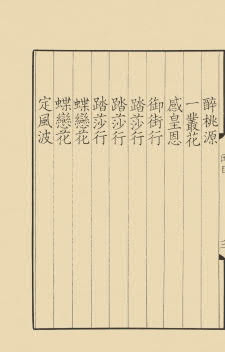 醉桃源
一叢花
感皇恩
御街行
踏莎行
踏莎行
踏莎行
蝶戀花
蝶戀花
定風波